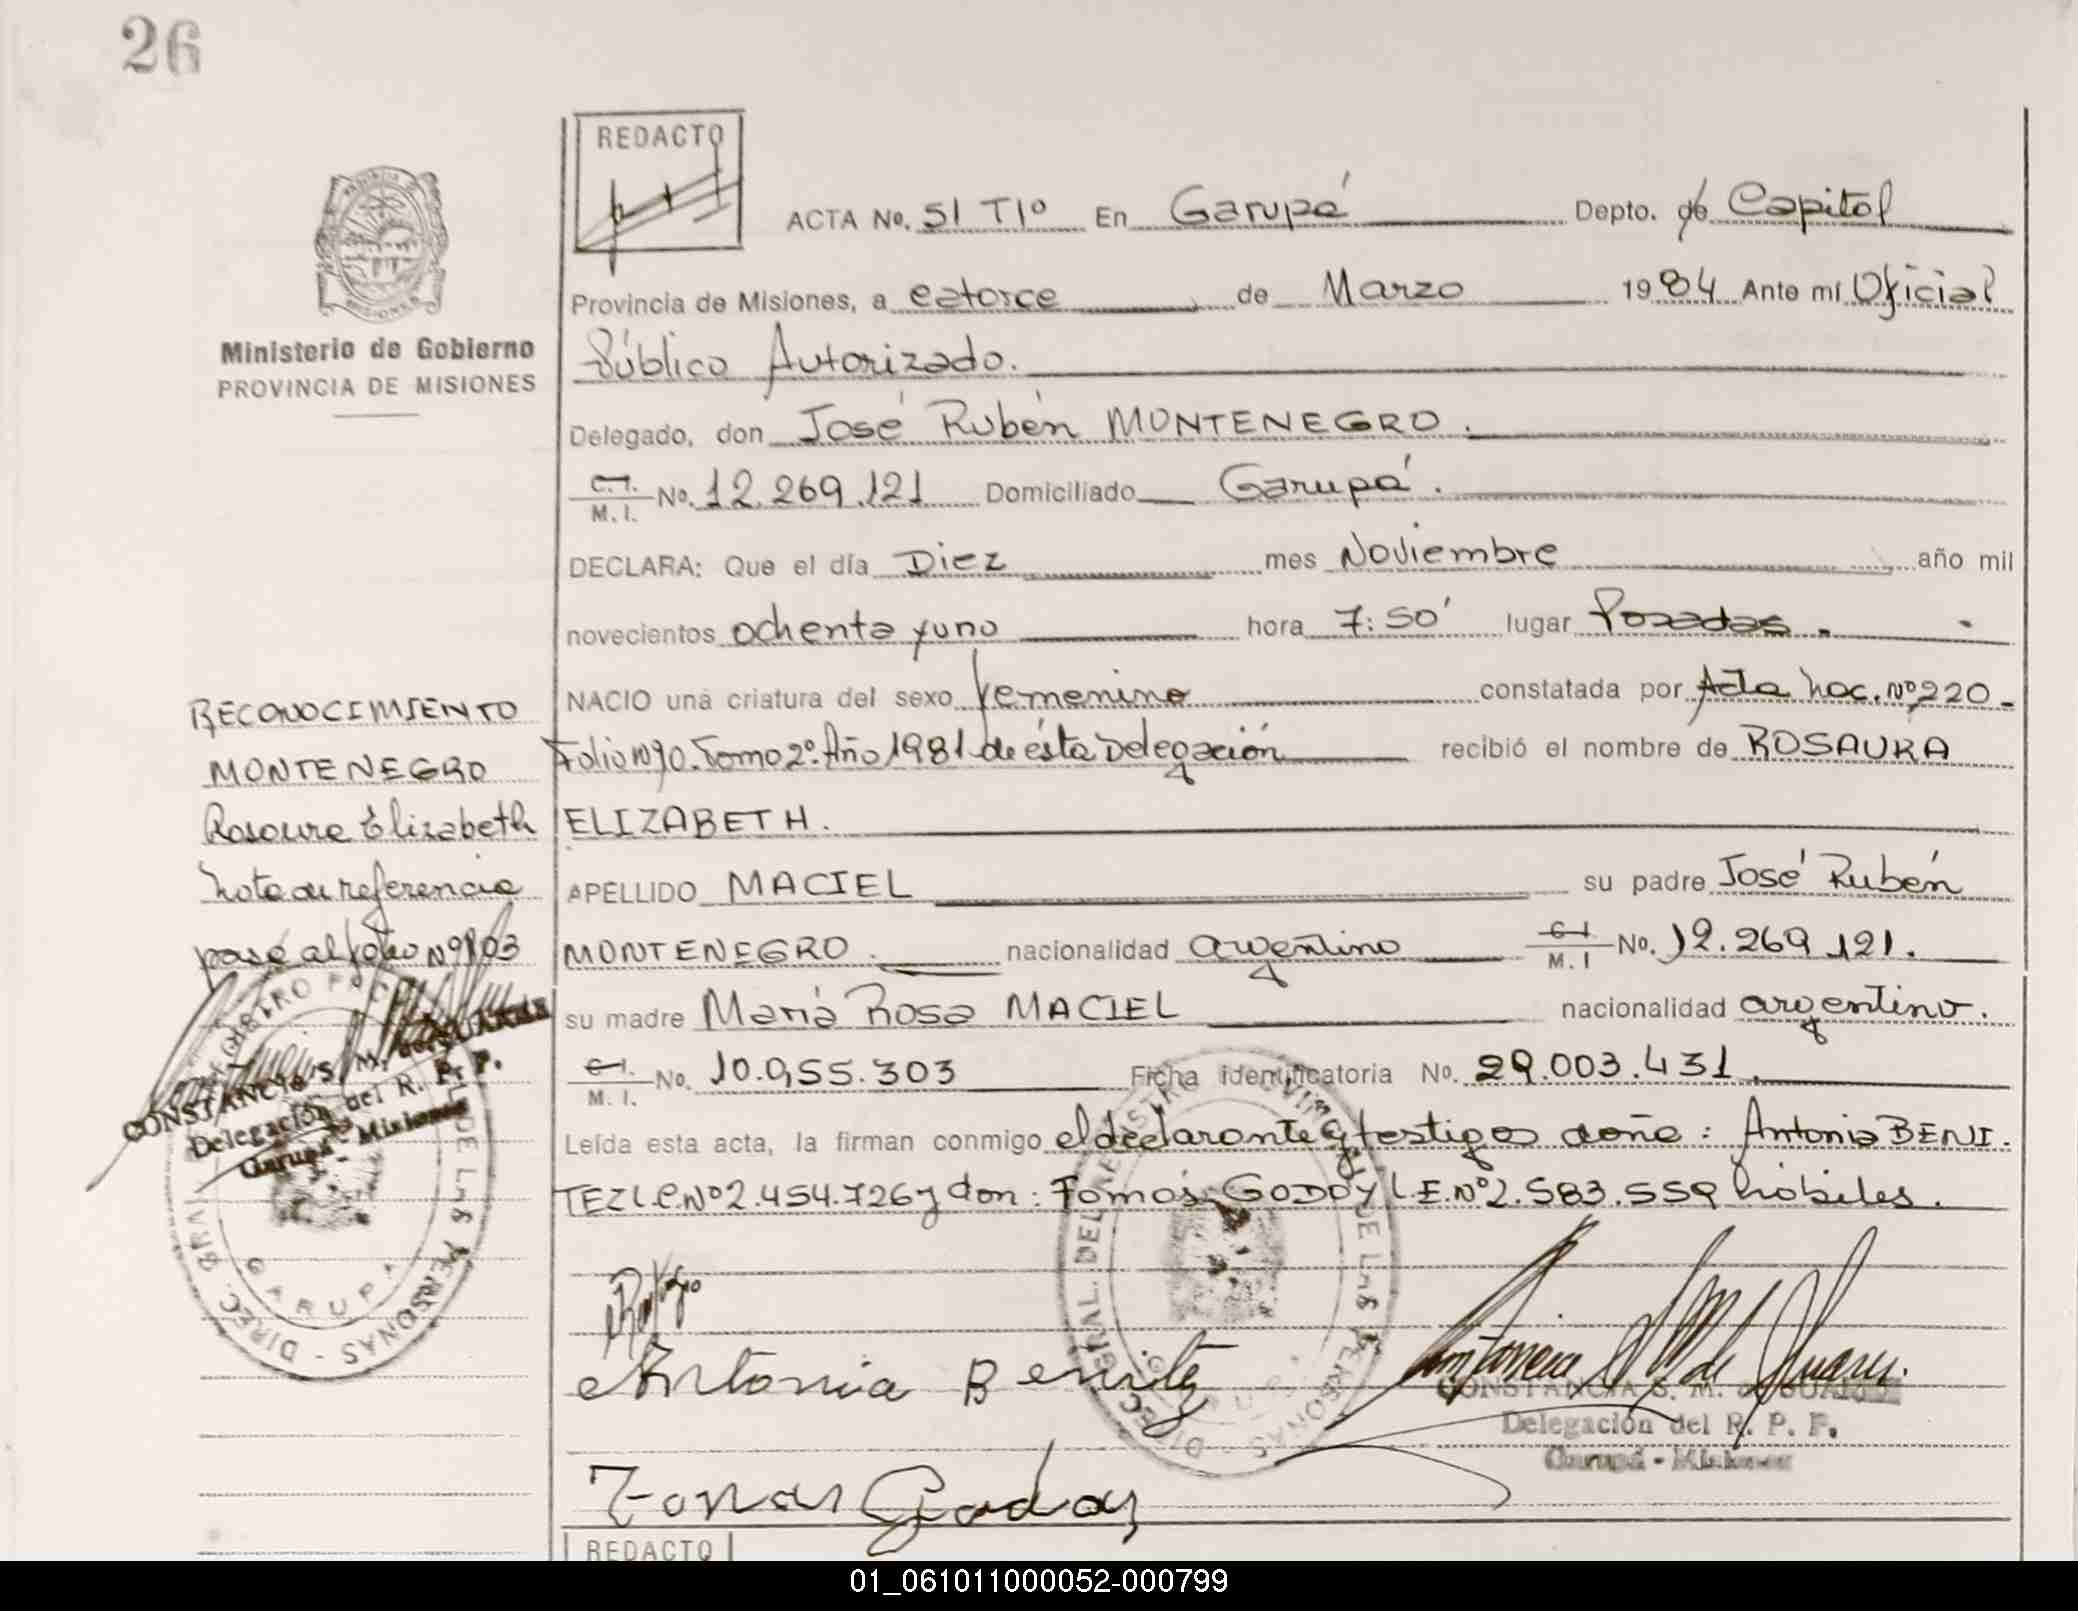 26
REDACTO
ACTA No. 51 T1º En Garupá Depto. de Capital
Provincia de Misiones, a catorce de Marzo 1984 Ante mí Oficial
Público Autorizado.
Delegado, don José Rubén MONTENEGRO.
C.I. M.I. No. 12.269.121 Domiciliado Garupá.
DECLARA: Que el día Diez mes Noviembre año mil
novecientos ochenta y uno hora 7:50' lugar Posadas.
NACIO una criatura del sexo femenino constatada por Acta Nac. Nº 220
Folio Nº 90. Tomo 2º. Año 1981 de ésta Delegación recibió el nombre de ROSAURA
ELIZABETH.
APELLIDO MACIEL su padre José Rubén
MONTENEGRO. nacionalidad argentino C.I. M.I No. 12.269.121.
su madre María Rosa MACIEL nacionalidad argentino.
C.I. M.I. No. 10.955.303 Ficha identificatoria No. 29.003.431.
Leída esta acta, la firman conmigo el declarante y testigos doña: Antonia BENI.
TEZ L.C. Nº 2.454.726 y don: Tomás GODOY L.E. Nº 2.583.559 hábiles.
Antonia Benitez
Tomas Godoy
CONSTANCIA S. M. de SUAREZ
Delegación del R. P. P.
Garupá - Misiones
REDACTO
PROVINCIA DE MISIONES
Ministerio de Gobierno
PROVINCIA DE MISIONES
RECONOCIMIENTO
MONTENEGRO
Rosaura Elizabeth
Nota de referencia
pase al folio Nº 103
CONSTANCIA S. M. de SUAREZ
Delegación del R. P. P.
Garupá - Misiones
DIREC. GRAL. DEL REGISTRO PROVINCIAL DE LAS PERSONAS
GARUPA
DIREC. GRAL. DEL REGISTRO PROVINCIAL DE LAS PERSONAS
01_061011000052-000799